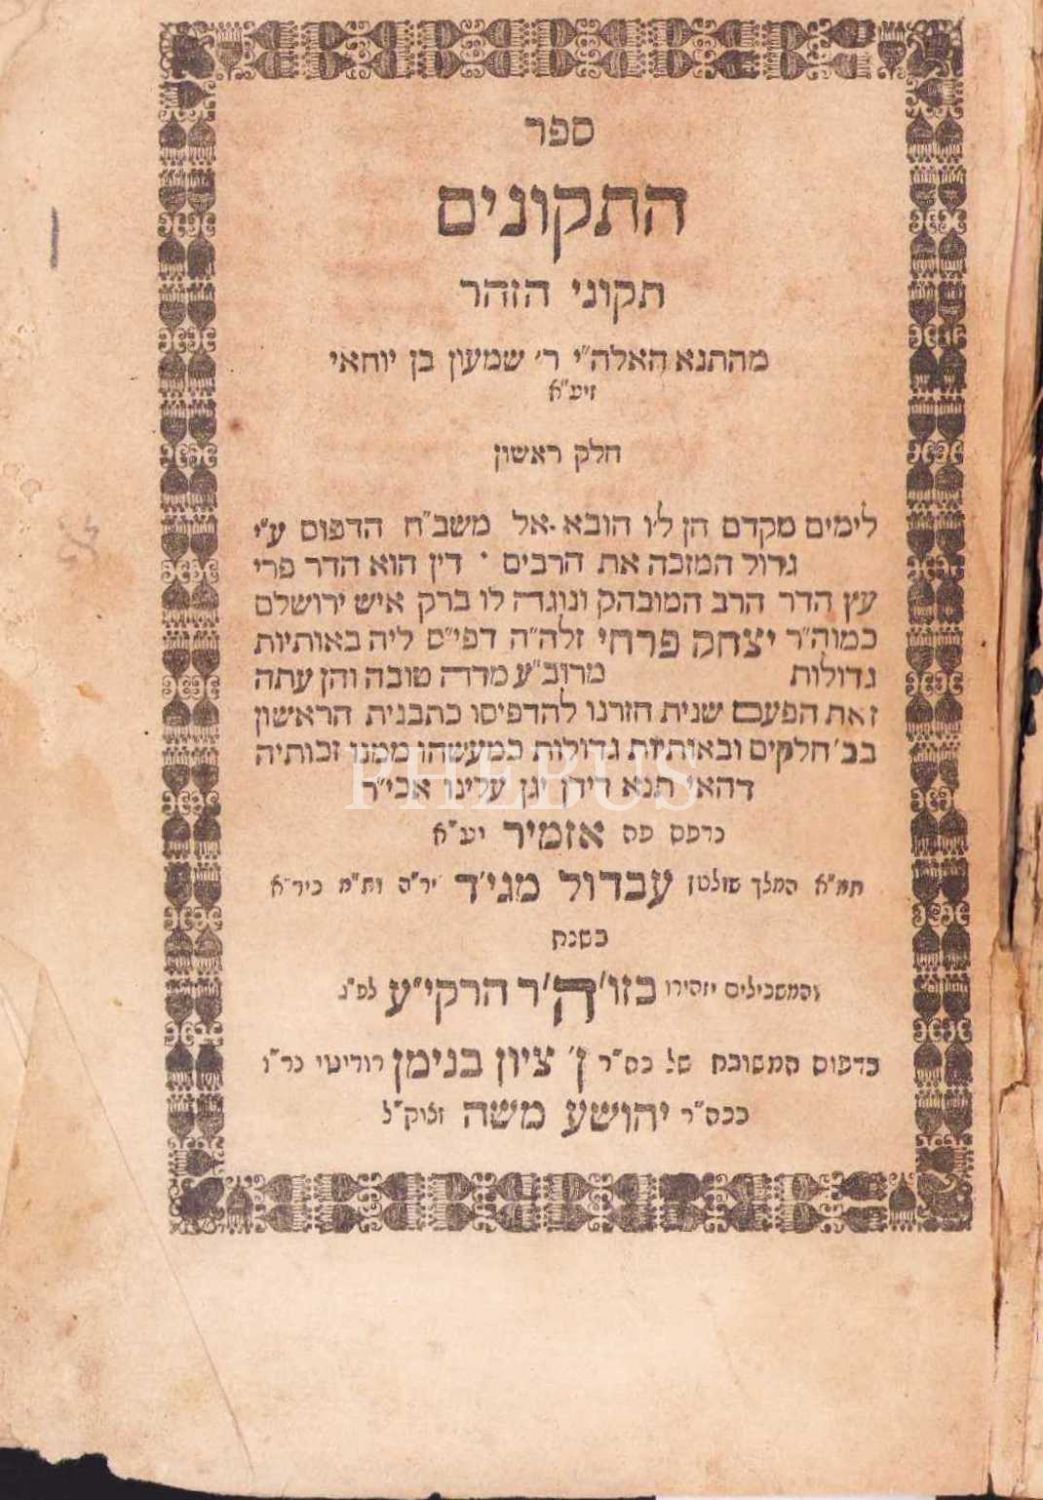 ספר
התקונים
תקוני הזהר
מהתנא האלה"י ר' שמעון בן יוחאי
זיע"א
חלק ראשון
לימים מקדם הן ל'ו הובא אל משב"ח הדפוס ע"י
גדול המזכה את הרבים דין הוא הדר פרי
עץ הדר הרב המובהק ונוגה לו ברק איש ירושלם
כמוה"ר יצחק פרחי זלה"ה דפי"ס ליה באותיות
גדולות מרוב"ע מדה טובה והן עתה
זאת הפעם שנית חזרנו להדפיסו כתבנית הראשון
בב' חלקים ובאותיות גדולות כמעשהו ממנו זכותיה
דהאי תנא דידן יגן עלינו אכי"ר
נדפס פה אזמיר יע"א
תמ"א המלך שולטן עבדול מגי'ד יר"ה ות"ת כיר"א
בשנת
והמשכילים יזהירו כזו'ה'ר הרקי"ע לפ"ג
בדפוס המשובח של כה"ר ן' ציון בנימן רודיטי נר"ו
בכה"ר יהושע משה זלוק"ל
PHEBUS